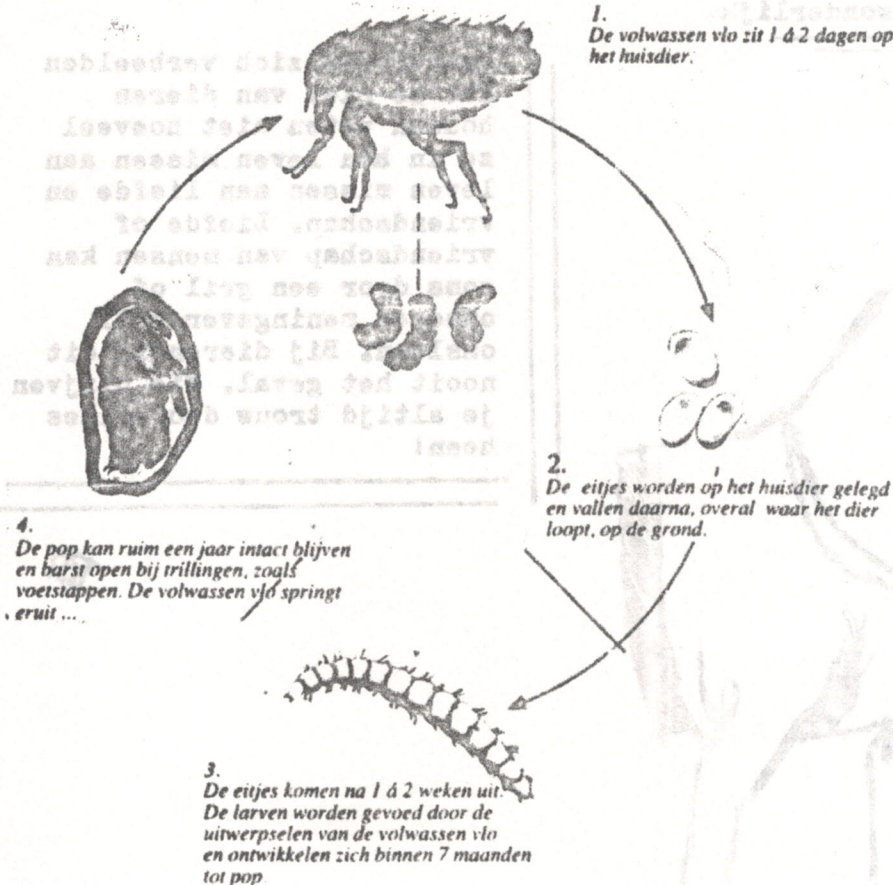 1.
De volwassen vlo zit 1 á 2 dagen op
het huisdier.
2.
De eitjes worden op het huisdier gelegd
en vallen daarna, overal waar het dier
loopt, op de grond.
3.
De eitjes komen na 1 á 2 weken uit.
De larven worden gevoed door de
uitwerpselen van de volwassen vlo
en ontwikkelen zich binnen 7 maanden
tot pop
4.
De pop kan ruim een jaar intact blijven
en barst open bij trillingen, zoals
voetstappen. De volwassen vlo springt
eruit ...